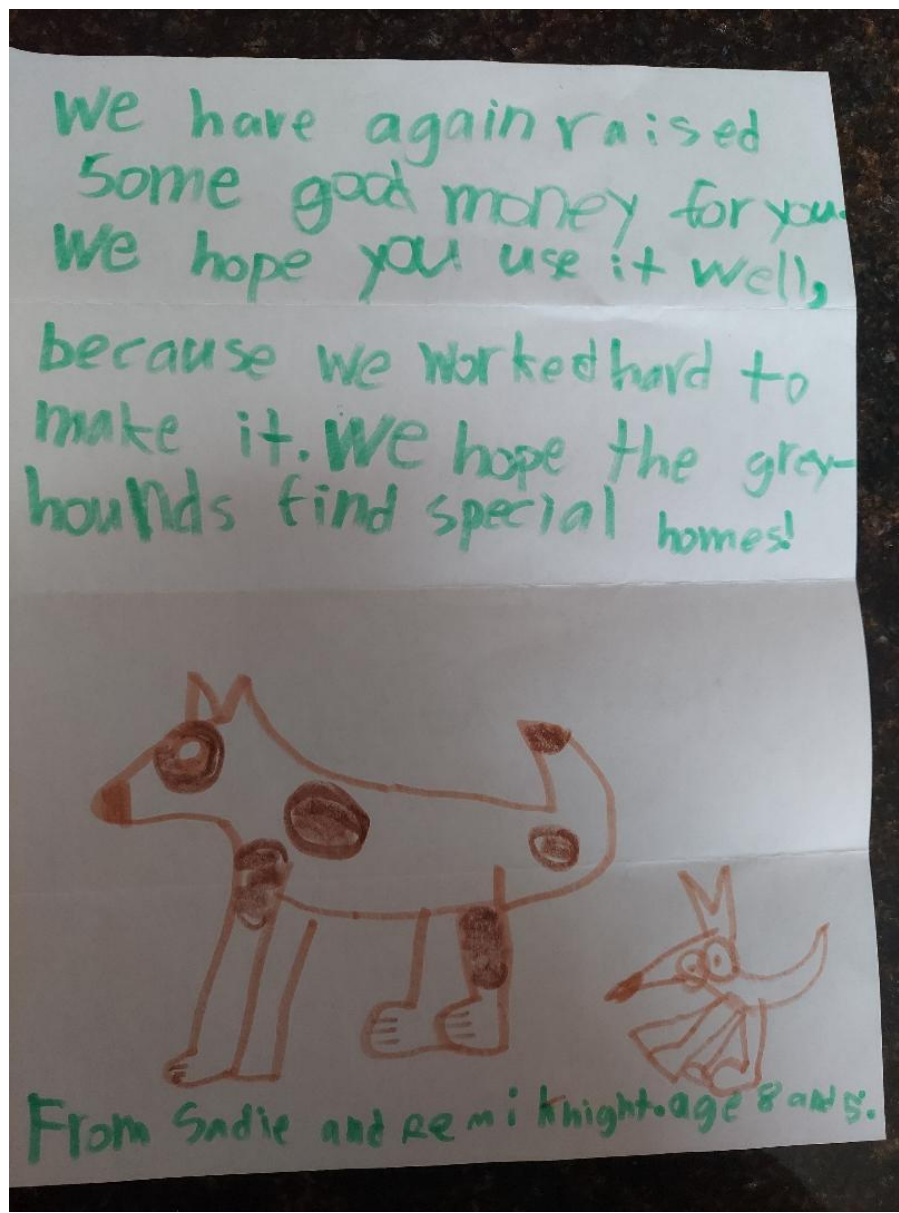 We have again raised
Some good money for you.
We hope you use it well,
because we worked hard to
make it. We hope the grey-
hounds find special homes!
From Sadie and Remi Knight. age 8 and 5.